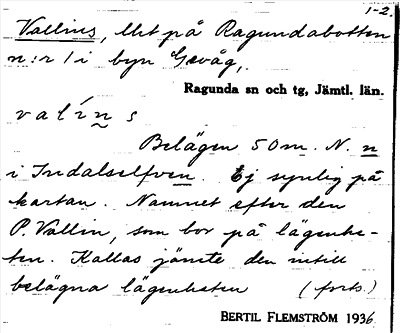 1-2.
Vallins, lht på Ragundabotten
n:r 1 i byn Gevåg,
Ragunda sn och tg, Jämtl. län.
v a l í n s
Belägen 50 m. N. n
i Indalselfven. Ej synlig på
kartan. Namnet efter den
P. Vallin, som bor på lägenhe-
ten. Kallas jämte den intill
belägna lägenheten (forts.)
BERTIL FLEMSTRÖM 1936.